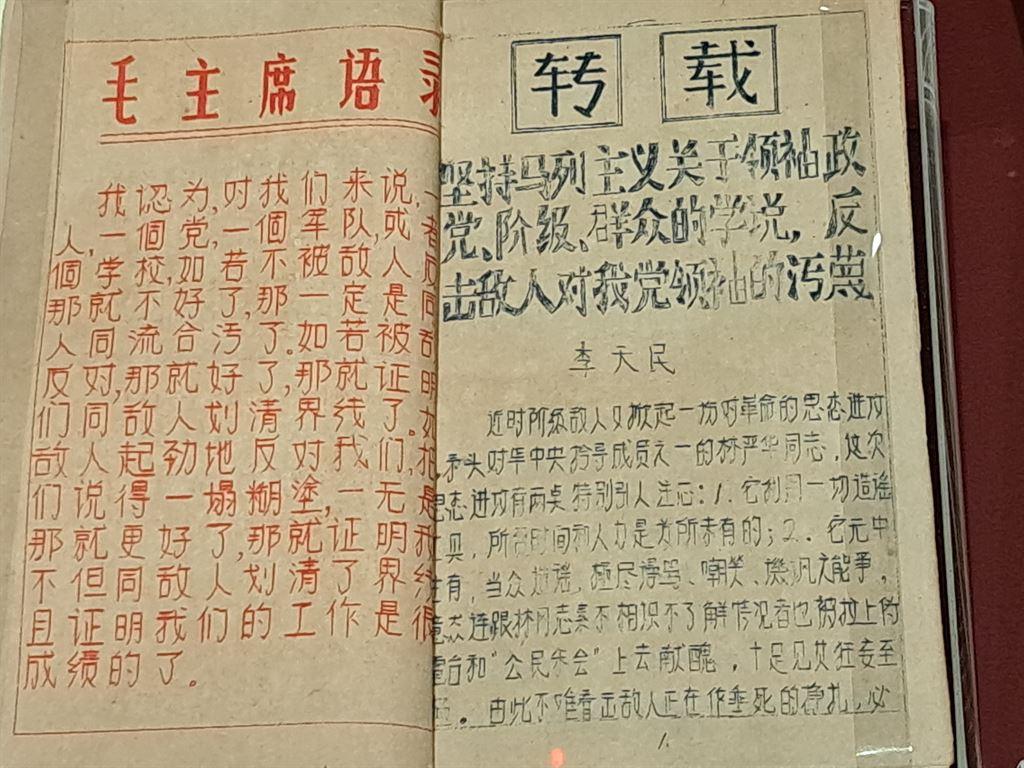 毛主席语录
我認为,对我们来说,一
人,一個党,一個军队,或者
個学校,如若不被敌人反
那就不好了,那一定是同
人同流合污了。如若被敌
反对,那就好了,那就证明
们同敌人划清界线了。如
敌人起劲地反对我们,把
们说得一塌糊塗,一无是
那就更好了,那就证明我
不但同敌人划清了界线
且证明我们的工作是很
成绩的了。
转载
坚持马列主义关于领袖政
党、阶级、群众的学说,反
击敌人对我党领袖的污蔑
李天民
近时阶级敌人又掀起一场对革命的思态进攻
,矛头对年中央指导成员之一的林严华同志,这次
思态进攻有两桌特别引人注心:1.它利用一切造谣
具,所含时间和人力是为所未有的;2.它元中
有,当众造谣,極尽谩骂、嘲笑、讽之能事,
竟态连跟林同志素不相识不了解情况者也被拉上
台和“公民东会”上去献醜,十足见其狂妄至
。由此不难看出敌人正在作垂死的挣扎,必
1.